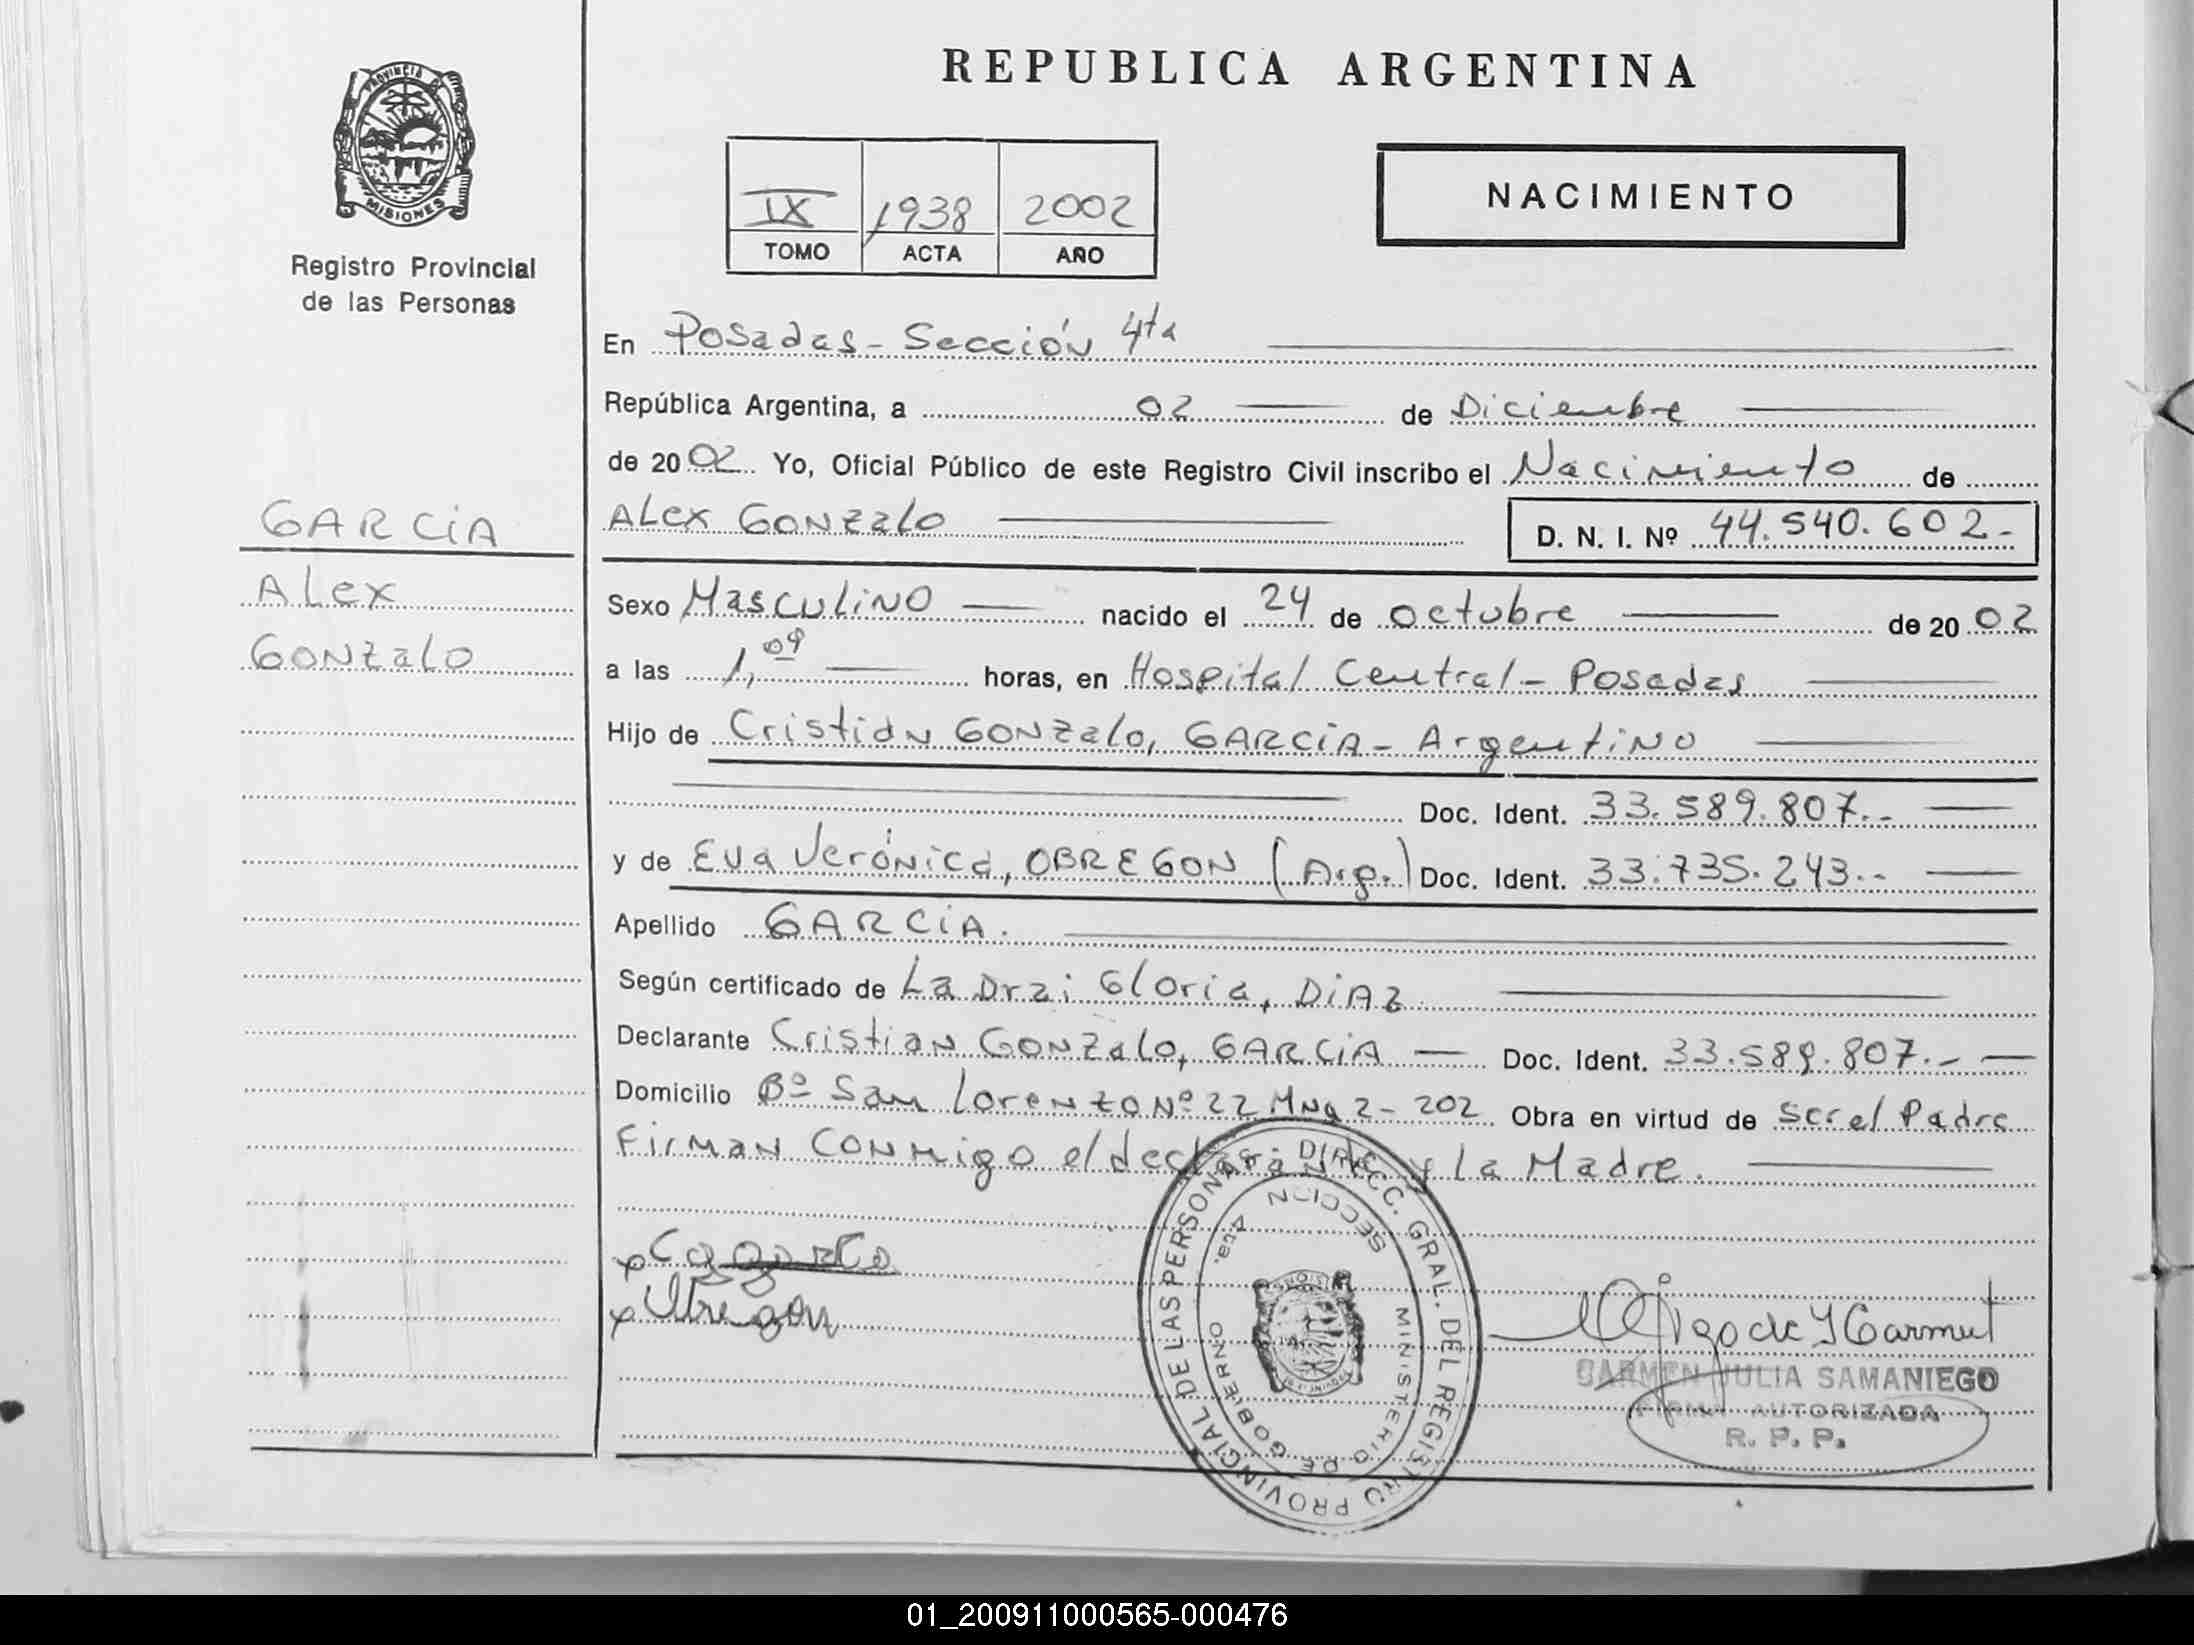 REPUBLICA ARGENTINA
PROVINCIA DE
MISIONES
Registro Provincial
de las Personas
IX 1938 2002
TOMO ACTA AÑO
NACIMIENTO
En Posadas - Sección 4ta
República Argentina, a 02 de Diciembre
de 2002 Yo, Oficial Público de este Registro Civil inscribo el Nacimiento de
ALex GONzalo D. N. I. Nº 44.540.602.-
GARCiA
ALex
GONzalo
Sexo Masculino nacido el 24 de octubre de 2002
a las 1,09 horas, en Hospital Central - Posadas
Hijo de Cristian GONzalo, GARCiA - Argentino
Doc. Ident. 33.589.807.-
y de Eva Verónica, OBREGON (Arg.) Doc. Ident. 33.735.243.-
Apellido GARCiA.
Según certificado de La Dra; Gloria, DiAz
Declarante Cristian GONzalo, GARCiA Doc. Ident. 33.589.807.-
Domicilio Bº San Lorenzo Nº 22 Mna 2 - 202 Obra en virtud de ser el Padre
Firman conmigo el declarante y La Madre.
Obregon
DIRECC. GRAL. DEL REGISTRO PROVINCIAL DE LAS PERSONAS
SECCION 4ta.
MINISTERIO DE GOBIERNO
CARMEN JULIA SAMANIEGO
FIRMA AUTORIZADA
R. P. P.
01_200911000565-000476